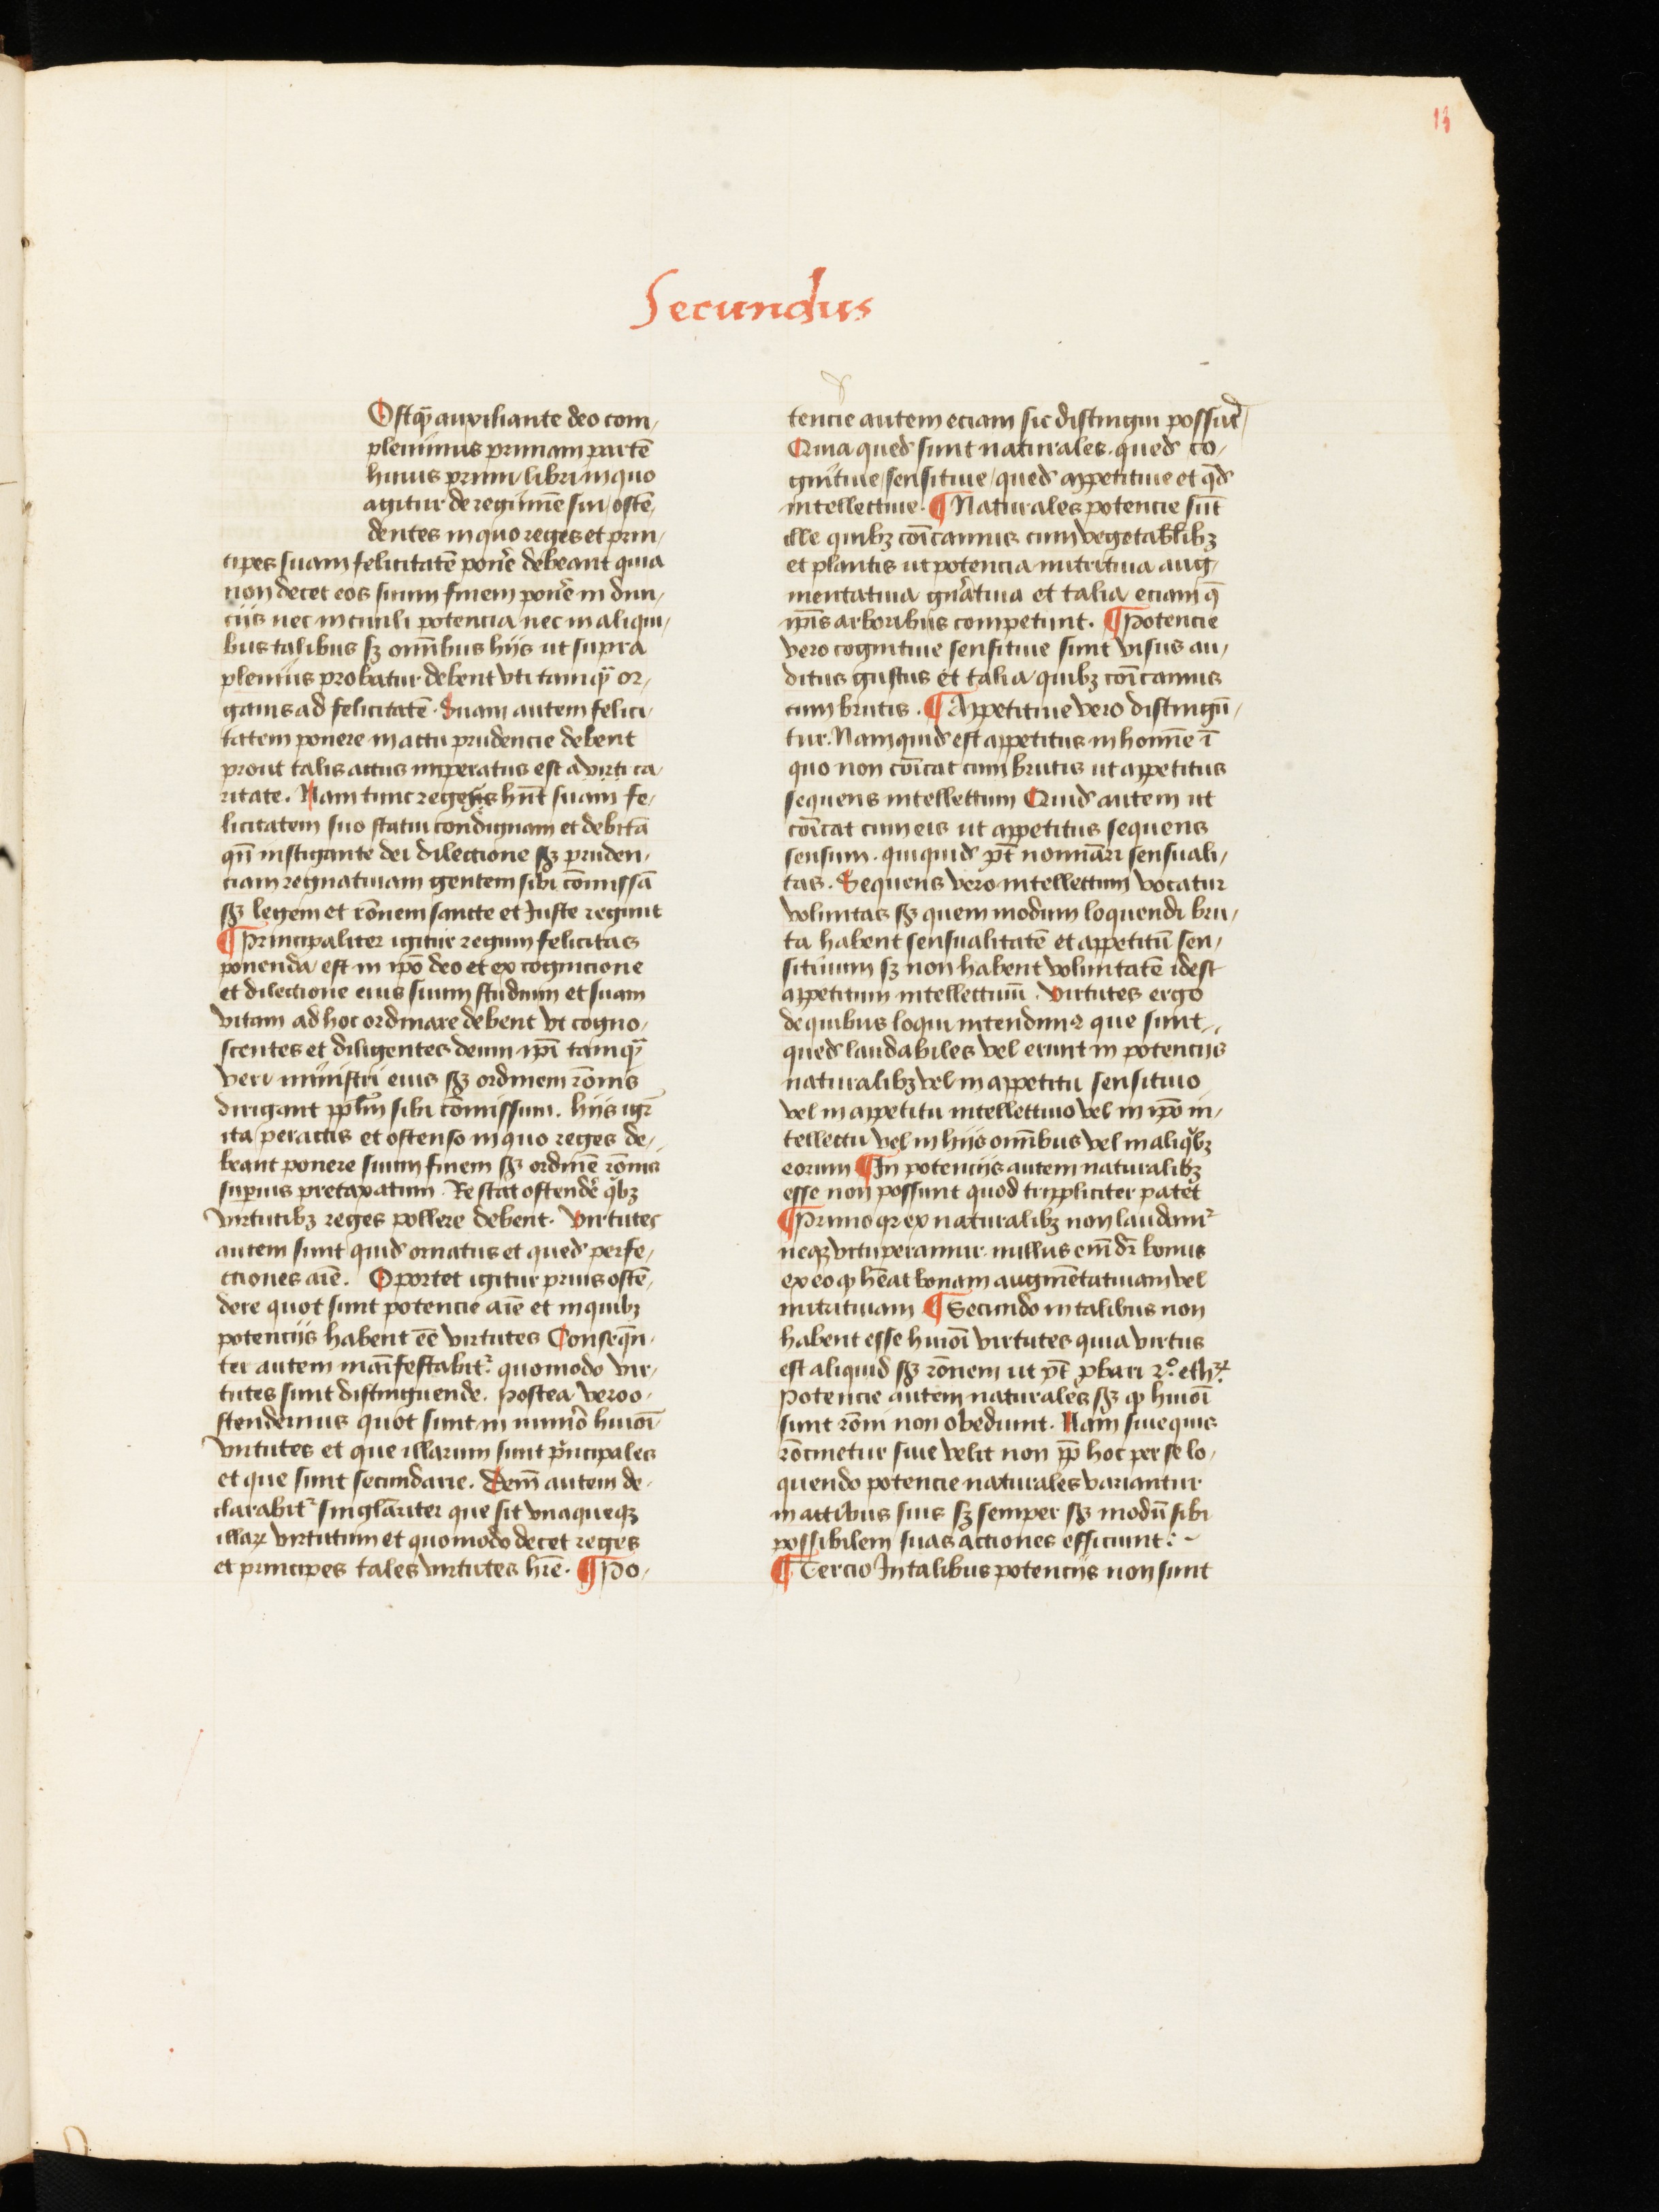 13
Secundus
Ostq̄ auxiliante deo com/
pleuimus primam partē
huius primi libri in quo
agitur de regimīe sui / ostē/
dentes in quo reges et prin/
cipes suam felicitatē ponē debeant quia
non decet eos suum finem ponē in diui/
ciis nec in ciuili potencia nec in aliqui/
bus talibus sꝫ om̄ibus hiis ut supra
plenius probatur debent vti tamq̄ or/
ganis ad felicitatē. Suam autem felici/
tatem ponere in actu prudencie debent
prout talis actus imperatus est a virti ca/
ritate. Nam tunc regens hn̄t suam fe/
licitatem suo statui condignam et debitā
qn̄ instigante dei dilectione sꝫ pruden/
ciam regnatiuam gentem sibi cōmissā
sꝫ legem et rōnem sancte et Juste regunt
¶ Principaliter igitur regum felicitas
ponenda est in ip̄o deo et ex cognicione
et dilectione eius suum studium et suam
vitam ad hoc ordinare debent vt cogno/
scentes et diligentes deum ip̄i tamq̄
veri ministri eius sꝫ ordinem rōnis
dirigant pp̄lm̄ sibi cōmissum. hiis igr̄
ita peractis et ostenso in quo reges de/
beant ponere suum finem sꝫ ordinē rōnis
superius pretaxatum. Restat ostendē qͥbꝫ
virtutibꝫ reges pollere debent. Virtutes
autem sunt quid ornatus et qued perfe/
ctiones aīe. Oportet igitur prius ostē/
dere quot sunt potencie aīe et in quibꝫ
potenciis habent eē virtutes Conseqn̄/
ter autem māifestabit᷑ quomodo vir/
tutes sunt distinguende. postea vero o/
stendemus quot sunt in numō huiōi
virtutes et que illarum sunt pͥncipales
et que sunt secundarie. Dem̄ autem de/
clarabit᷑ singlāriter que sit vnaqueqꝫ
illaꝝ virtutum et quomodo decet reges
et principes tales virtutes hr̄e. ¶ Po/
tencie autem eciam sic distingui possūt
Quia qued sunt naturales. qued co/
gnitiue / sensitiue / qued appetitiue et qd̄
intellectiue. ¶ Naturales potencie sūt
ille quibꝫ cōicamus cum vegetablibꝫ
et plantis ut potencia nutritiua aug/
mentatiua gnr̄atiua et talia eciam q̄
ip̄is arboribus competunt. ¶ Potencie
vero cognitiue sensitiue sunt visus au/
ditus gustus et talia quibꝫ cōicamus
cum brutis. ¶ Appetitiue vero distingū/
tur. Nam quid est appetitus in homīe ī
quo non cōicat cum brutis ut appetitus
sequens intellectum Quid autem ut
cōicat cum eis ut appetitus sequens
sensum. qui quid pt̄ nominari sensuali/
tas. Sequens vero intellectum vocatur
voluntas sꝫ quem modum loquendi bru/
ta habent sensualitatē et appetitū sen/
sitiuum sꝫ non habent voluntatē idest
appetitum intellectiuū. Virtutes ergo
de quibus loqui intendim⁹ que sunt
qued laudabiles vel erunt in potenciis
naturalibꝫ vel in appetitu sensitiuo
vel in appetitu intellectiuo vel in ip̄o in/
tellectu vel in hiis om̄ibus vel in aliqͥbꝫ
eorum ¶ In potenciis autem naturalibꝫ
esse non possunt quod tripliciter patet
¶ Primo qr ex naturalibꝫ non laudam᷑
neqꝫ vituperamur. nullus em̄ dr̄ bonus
ex eo qꝫ hēat bonam augmētatiuam vel
nutritiuam ¶ Secundo in talibus non
habent esse huiōi virtutes quia virtus
est aliquid sꝫ rōnem ut pt̄ ꝓbari 2º. ethꝝ
Potencie autem naturales sꝫ qꝫ huiōi
sunt rōni non obediunt. Nam siue quis
rōcinetur siue velit non pp̄ hoc per se lo/
quendo potencie naturales variantur
in actibus suis sꝫ semper sꝫ modū sibi
possibilem suas actiones efficiunt: ~
¶ Tercio In talibus potenciis non sunt